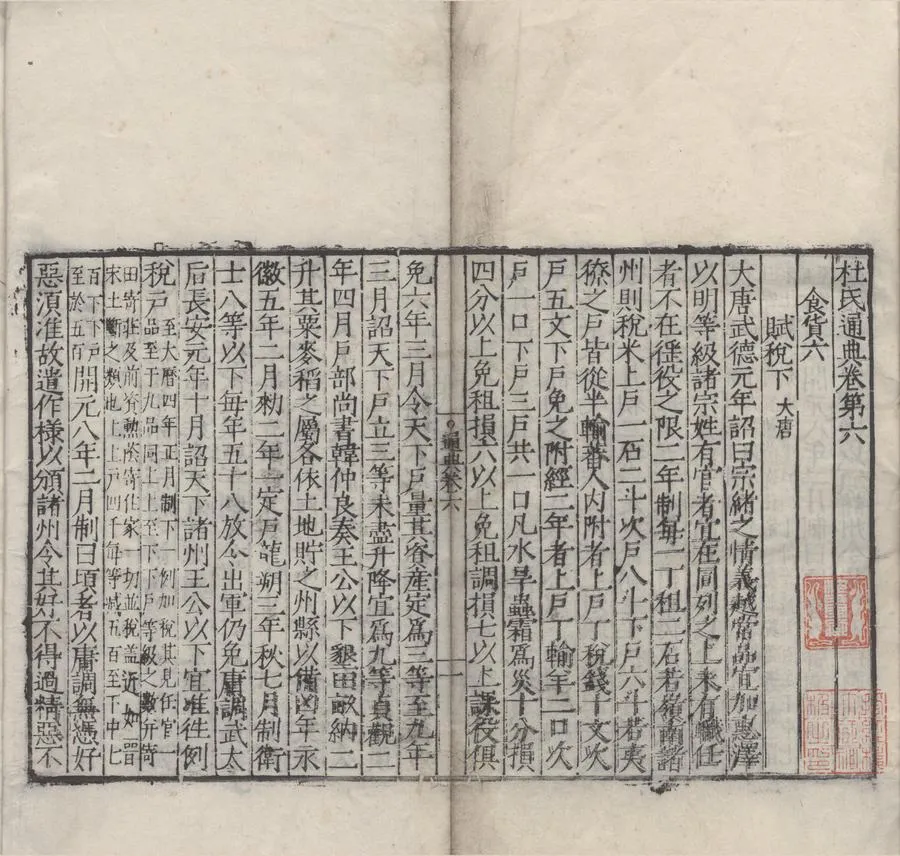 杜氏通典卷第六
食貨六
賦稅下 大唐
大唐武德元年詔曰宗緒之情義越常品宜加惠澤
以明等級諸宗姓有官者宜在同列之上未有職任
者不在徭役之限二年制每一丁租二石若嶺南諸
州則稅米上戶一石二斗次戶八斗下戶六斗若夷
獠之戶皆從半輸蕃人內附者上戶丁稅錢十文次
戶五文下戶免之附經二年者上戶丁輸羊二口次
戶一口下戶三戶共一口凡水旱蟲霜為災十分損
四分以上免租損六以上免租調損七以上課役俱
通典卷六
一
免六年三月令天下戶量其資產定為三等至九年
三月詔天下戶立三等未盡升降宜為九等貞觀二
年四月戶部尚書韓仲良奏王公以下墾田畝納二
升其粟麥稻之屬各依土地貯之州縣以備凶年永
徽五年二月勑二年一定戶龍朔三年秋七月制衛
士八等以下每年五十八放令出軍仍免庸調武太
后長安元年十月詔天下諸州王公以下宜准往例
稅戶 至大曆四年正月制下一例加稅其見任官一
品至于九品同上上至下下戶等級之數并寄
田寄莊及前資勲蔭寄住家一切並稅盖近如晉
宋土斷之類也上上戶四千每等減五百至下中七
百下下戶
至於五百 開元八年二月制曰頃者以庸調無憑好
惡須准故遣作樣以頒諸州令其好不得過精惡不